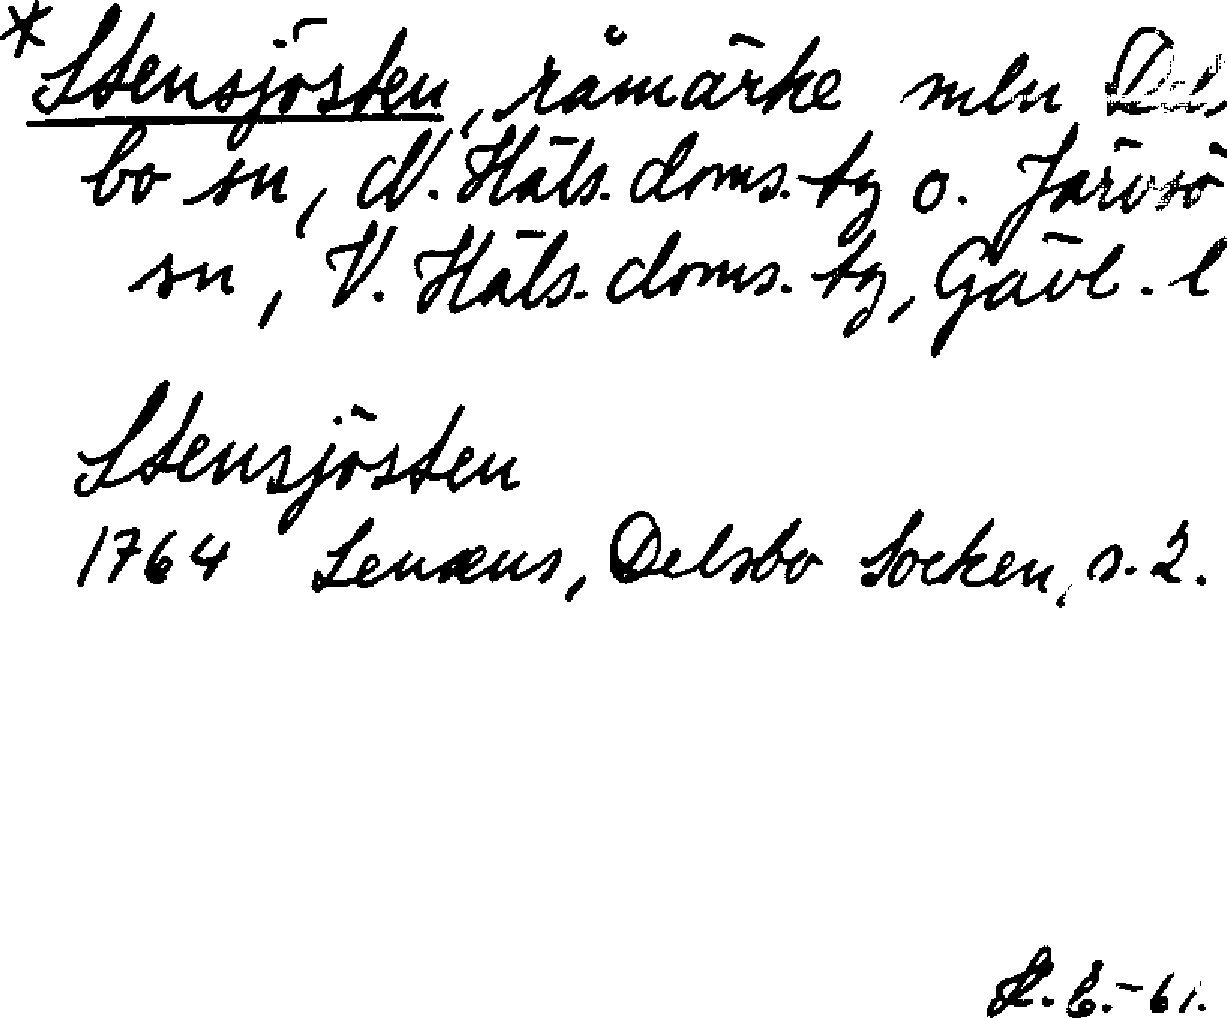 *Stensjösten, råmärke mln Dels
bo sn, N. Häls. doms. tg o. Järvsö
sn, V. Häls. doms. tg, Gävl. l
Stensjösten
1764 Lenæus, Delsbo Socken, s. 2.
E.-61.